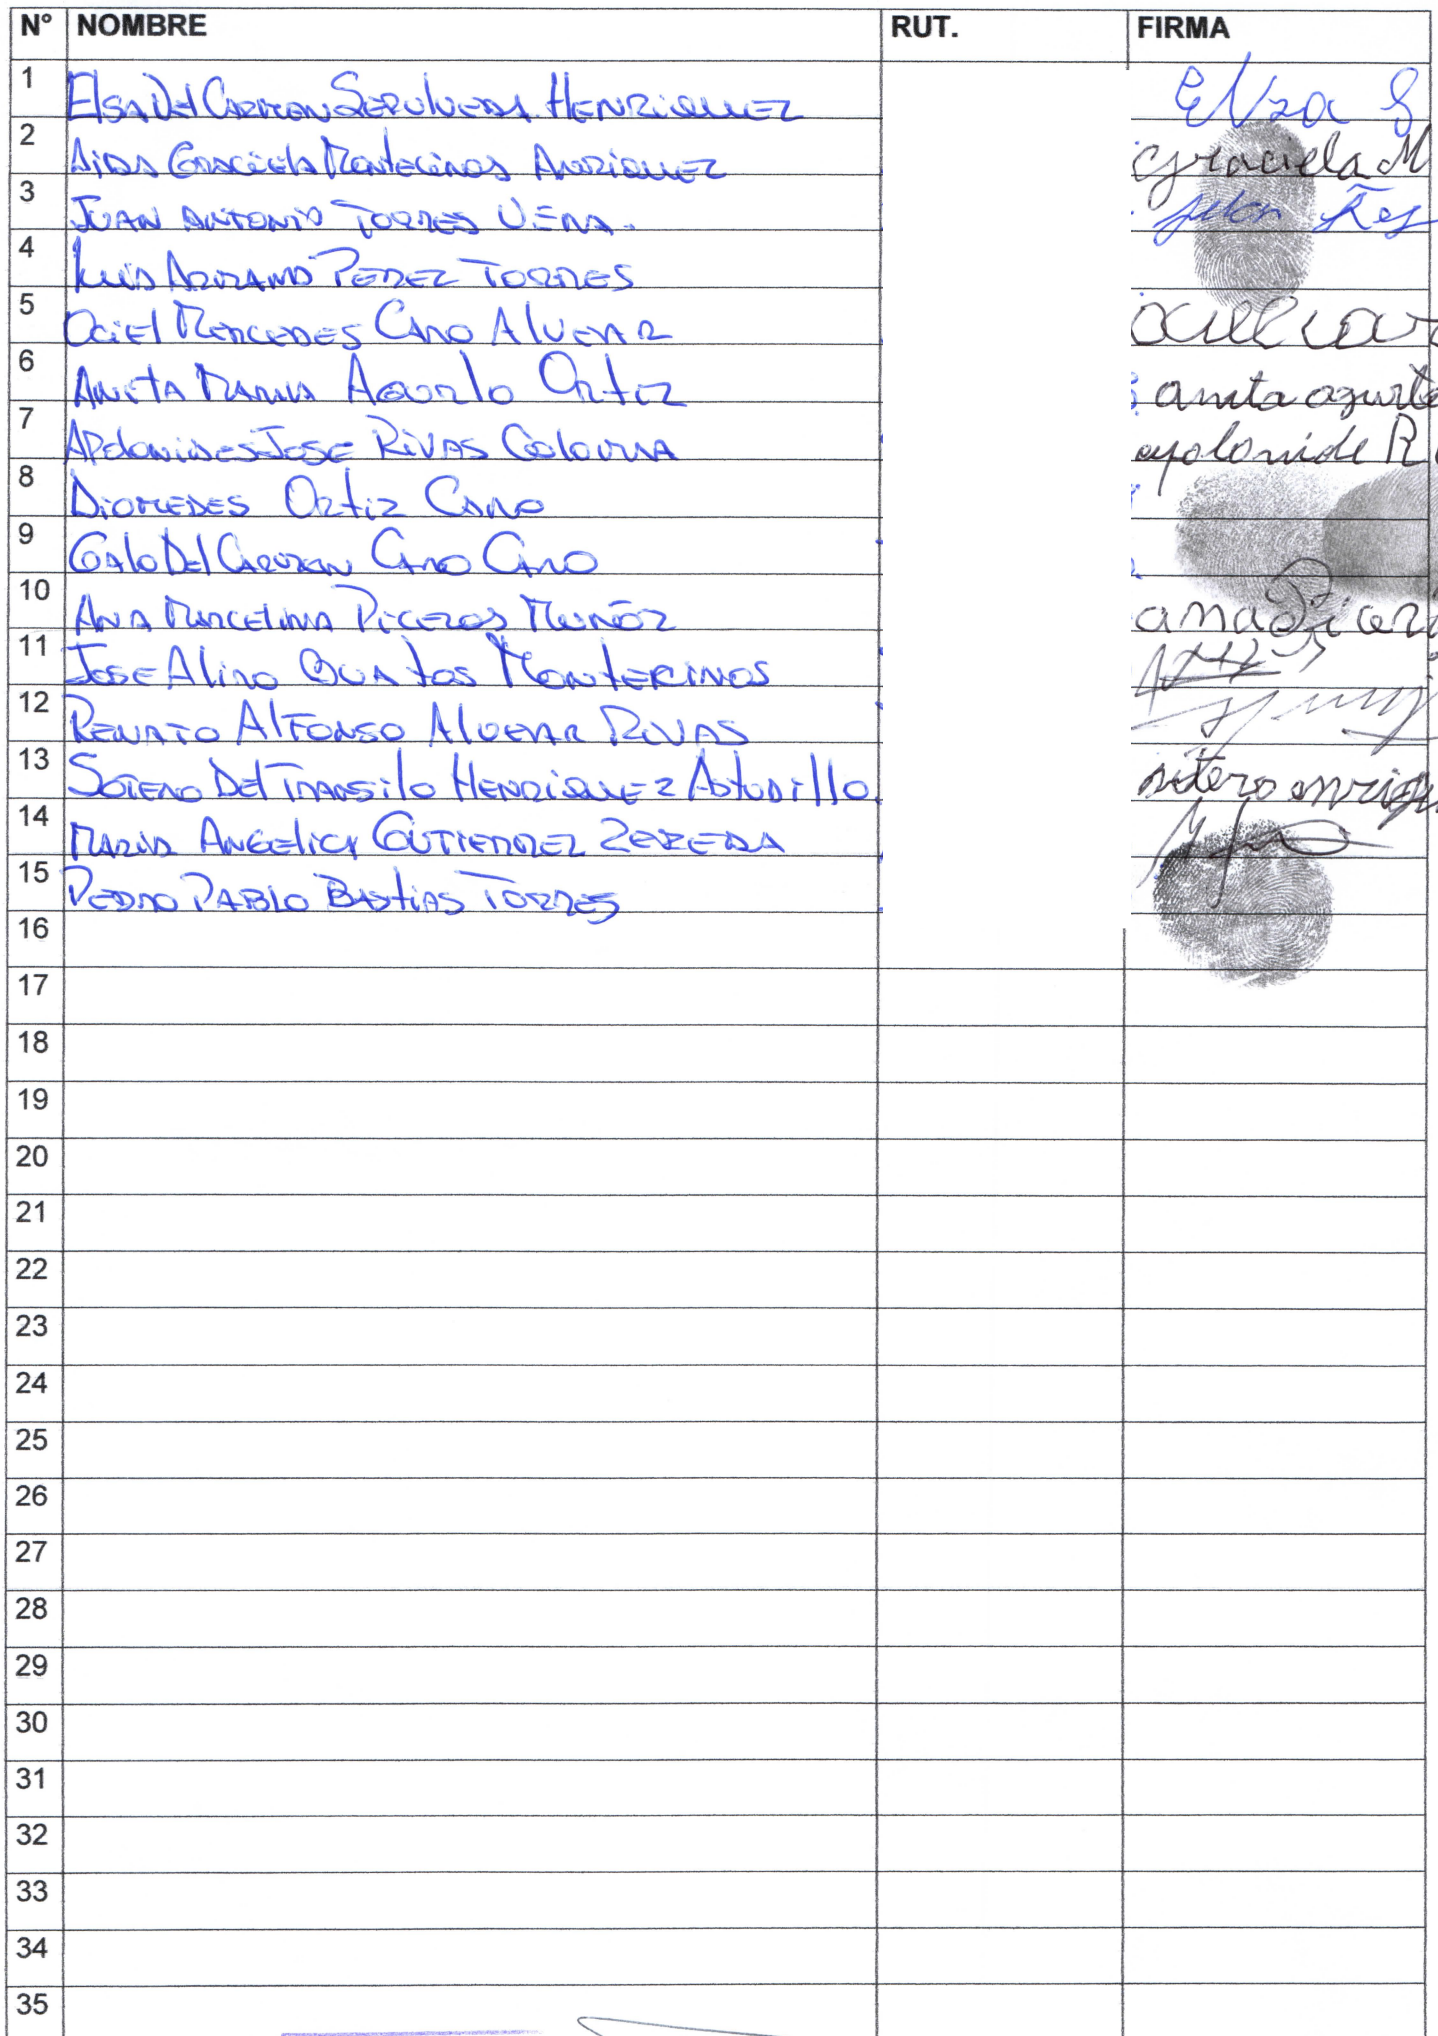 N° NOMBRE RUT. FIRMA
1 Elsa Del Carmen Sepulveda Henriquez Elza S
2 Aida Graciela Montecinos Anriquez Graciela M
3 Juan Antonio Torres Vera.
4 Luis Armando Perez Torres
5 Ociel Mercedes Caro Alvear
6 Aneta Maria Agurto Ortiz anita agurto
7 Apolonides Jose Rivas Apolonide R
8 Diomedes Ortiz Caro
9 Galo Del Carmen Caro Caro
10 Ana Marcelina Piceros Muñoz ana
11 Jose Alino Montecinos
12 Renato Alfonso Alvear Rivas
13 Sotero Del Transito Henriquez Astudillo
14 Maria Angelica Gutierrez Zepeda
15 Pedro Pablo Bastias Torres
16
17
18
19
20
21
22
23
24
25
26
27
28
29
30
31
32
33
34
35